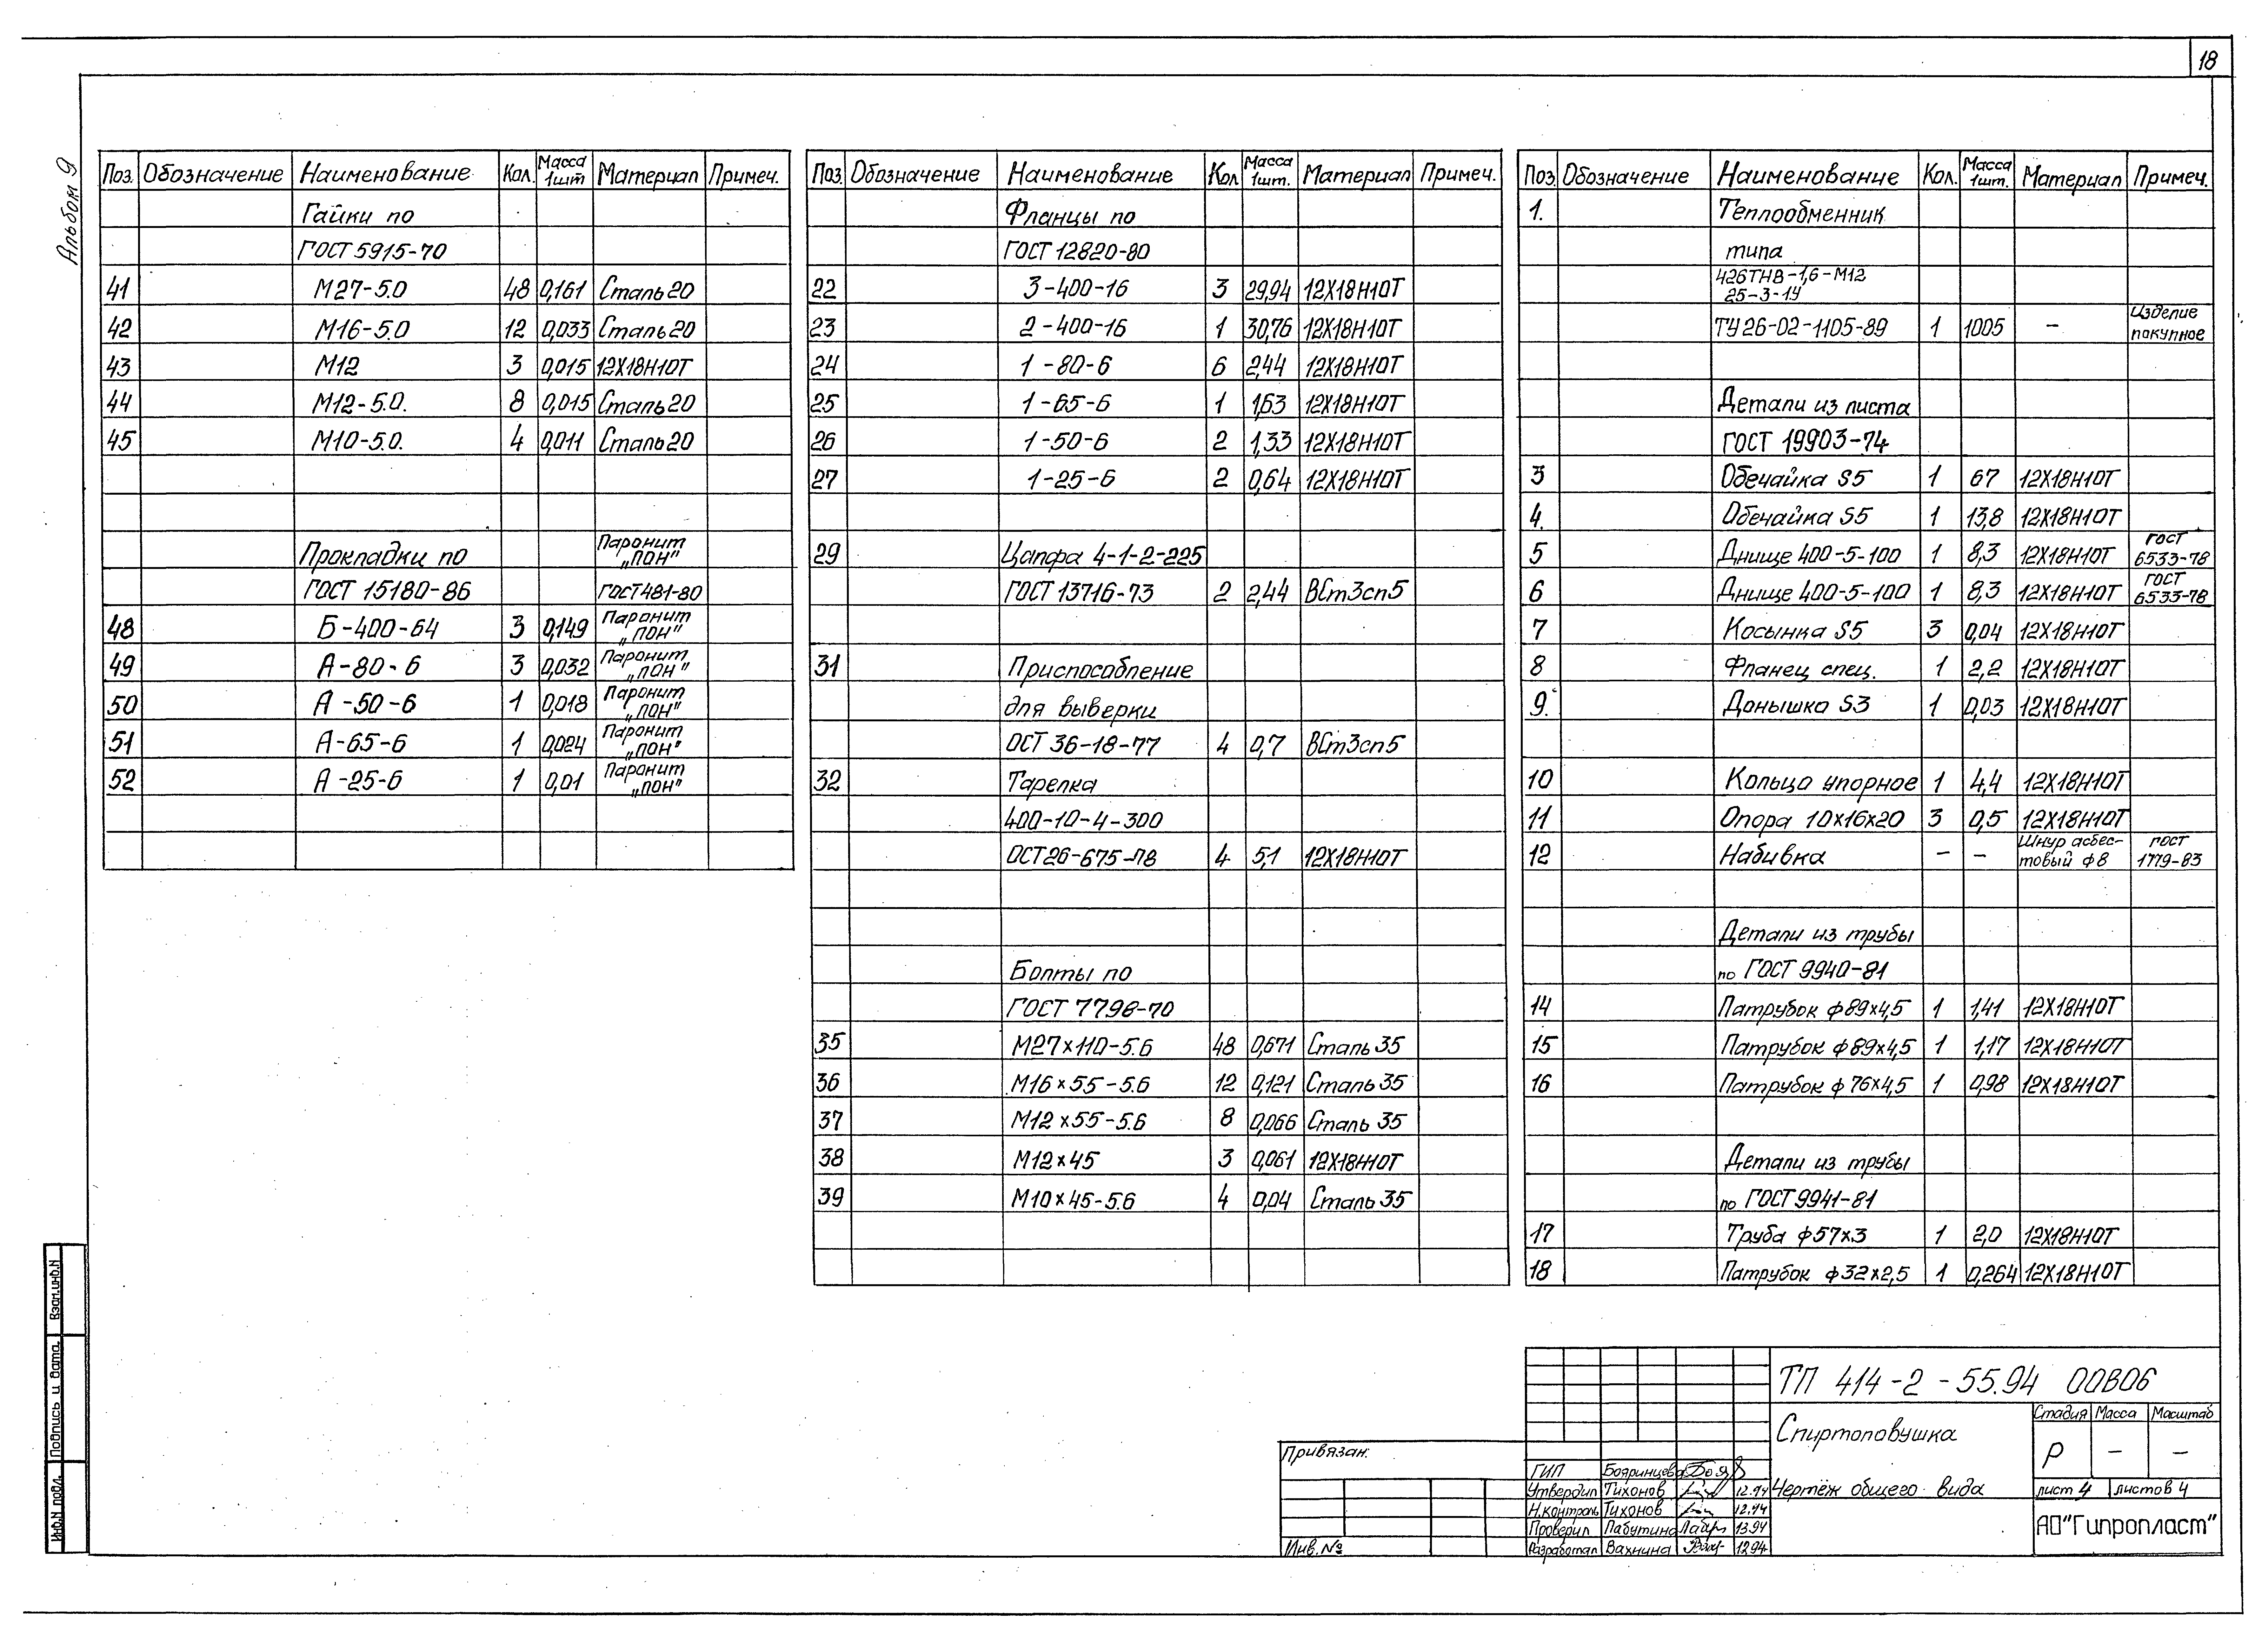 18
Альбом 9
Поз. Обозначение Наименование Кол. Масса 1шт Материал Примеч.
Гайки по
ГОСТ 5915-70
41 М27-5.0 48 0,161 Сталь 20
42 М16-5.0 12 0,033 Сталь 20
43 М12 3 0,015 12Х18Н10Т
44 М12-5.0. 8 0,015 Сталь 20
45 М10-5.0. 4 0,011 Сталь 20
Прокладки по Паронит „ПОН"
ГОСТ 15180-86 ГОСТ 481-80
48 Б-400-64 3 0,149 Паронит „ПОН"
49 А-80-6 3 0,032 Паронит „ПОН"
50 А-50-6 1 0,018 Паронит „ПОН"
51 А-65-6 1 0,024 Паронит „ПОН"
52 А-25-6 1 0,01 Паронит „ПОН"
Поз. Обозначение Наименование Кол Масса 1шт. Материал Примеч.
Фланцы по
ГОСТ 12820-80
22 3-400-16 3 29,94 12Х18Н10Т
23 2-400-16 1 30,76 12Х18Н10Т
24 1-80-6 6 2,44 12Х18Н10Т
25 1-65-6 1 1,63 12Х18Н10Т
26 1-50-6 2 1,33 12Х18Н10Т
27 1-25-6 2 0,64 12Х18Н10Т
29 Цапфа 4-1-2-225
ГОСТ 13716-73 2 2,44 ВСт3сп5
31 Приспособление
для выверки
ОСТ 36-18-77 4 0,7 ВСт3сп5
32 Тарелка
400-10-4-300
ОСТ 26-675-78 4 5,1 12Х18Н10Т
Болты по
ГОСТ 7798-70
35 М27х110-5.6 48 0,671 Сталь 35
36 М16х55-5.6 12 0,121 Сталь 35
37 М12х55-5.6 8 0,066 Сталь 35
38 М12х45 3 0,061 12Х18Н10Т
39 М10х45-5.6 4 0,04 Сталь 35
Поз. Обозначение Наименование Кол. Масса 1шт. Материал Примеч.
1. Теплообменник
типа
426ТНВ-1,6-М12
25-3-1.4
ТУ 26-02-1105-89 1 1005 – Изделие покупное
Детали из листа
ГОСТ 19903-74
3 Обечайка S5 1 67 12Х18Н10Т
4. Обечайка S5 1 13,8 12Х18Н10Т
5 Днище 400-5-100 1 8,3 12Х18Н10Т ГОСТ 6533-78
6 Днище 400-5-100 1 8,3 12Х18Н10Т ГОСТ 6533-78
7 Косынка S5 3 0,04 12Х18Н10Т
8 Фланец спец. 1 2,2 12Х18Н10Т
9. Донышко S3 1 0,03 12Х18Н10Т
10 Кольцо упорное 1 4,4 12Х18Н10Т
11 Опора 10х16х20 3 0,5 12Х18Н10Т
12 Набивка – – Шнур асбестовый ф8 ГОСТ 1779-83
Детали из трубы
по ГОСТ 9940-81
14 Патрубок ф89х4,5 1 1,41 12Х18Н10Т
15 Патрубок ф89х4,5 1 1,17 12Х18Н10Т
16 Патрубок ф76х4,5 1 0,98 12Х18Н10Т
Детали из трубы
по ГОСТ 9941-81
17 Труба ф57х3 1 2,0 12Х18Н10Т
18 Патрубок ф32х2,5 1 0,264 12Х18Н10Т
Взам.инв.N
Подпись и дата.
Инв.N подл.
Привязан:
Инв.№
ТП 414-2-55.94 00В06
Спиртоловушка
Чертёж общего вида
Стадия Масса Масштаб
Р – –
лист 4 листов 4
АО"Гипропласт"
ГИП Бояринцева
Утвердил Тихонов 12.94
Н.контроль Тихонов 12.94
Проверил Лабутина 13.94
Разработал Вахнина 12.94